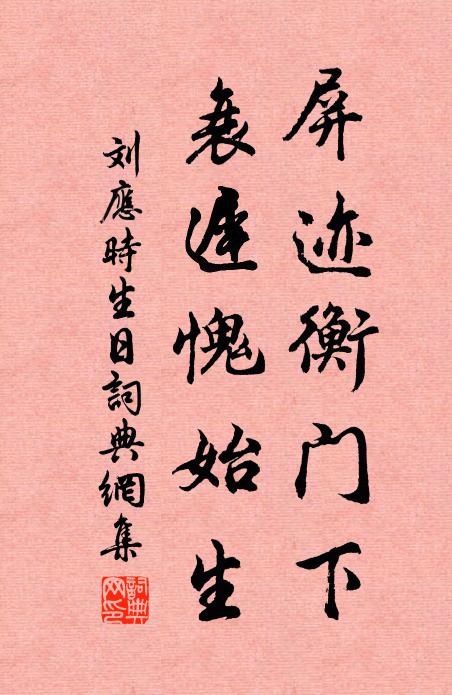 屏迹衡门下
衰遲愧始生
刘應時生日詞典網集
詞典网印